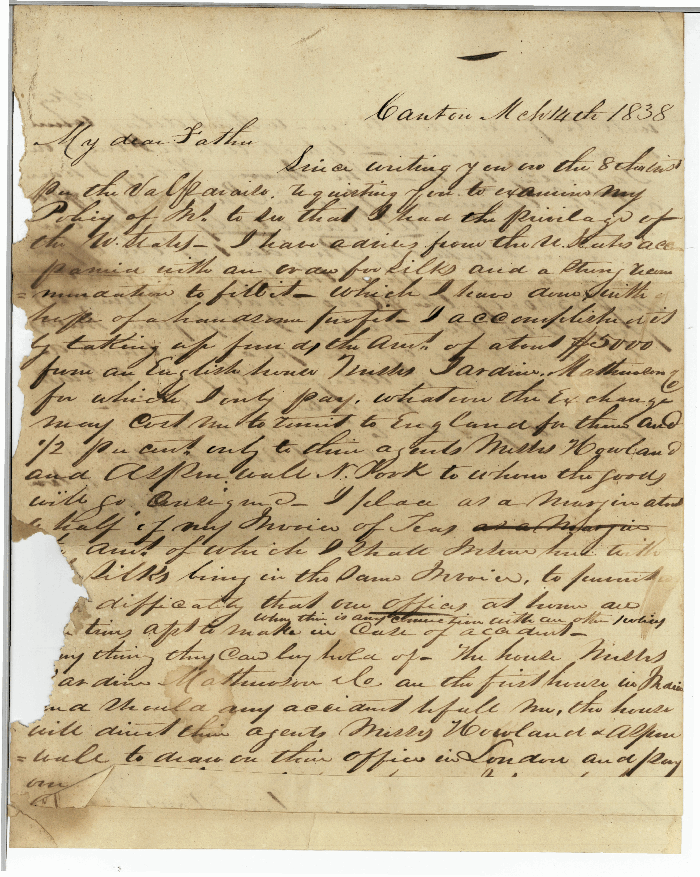 Canton Mch 14th 1838
My dear Father
Since writing you on the 8th inst
per the Valparaiso, requesting you to examine my
Policy of Ins. to see that I had the privilage of
the U. States - I have advices from the U. States acc
panied with an order for Silks and a strong recom
=mendation to fill it - which I have done with
hope of a handsome profit - I accomplish it
by taking up funds, the amt. of about $5000
from an English house Messrs Jardine, Matheson &
for which I only pay, whatever the Exchange
may cost me to remit to England for them and
1/2 per cent. only to their agents Messrs Howland
and Aspinwall N. York to whom the goods
will go consigned - I place as a Margin
half of my Invoice of Teas as a Margin
amt. of which I shall Insure here with
Silks being in the Same Invoice, to
difficulty that our offices at home are
when there is any connection with an other policy
times apt to make in Case of accident -
any thing they can lay hold of - The house Messrs
Jardine Matheson & Co are the first house in
and should any accident befall me, the house
will direct their agents Messrs Howland & Aspin
=wall to draw on their office in London and pay
our